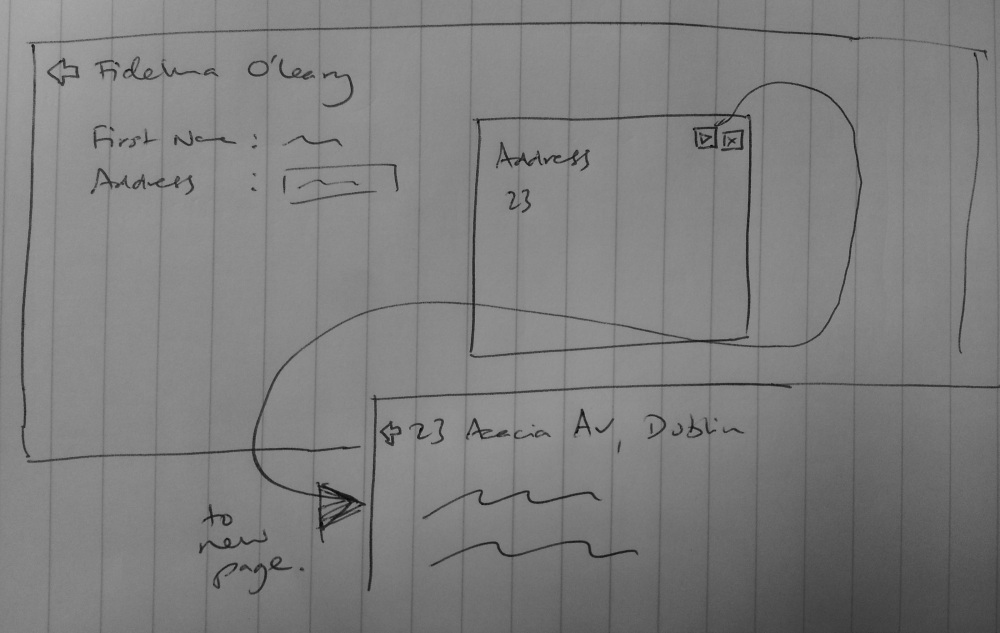 Fidelma O'Leary
First Name :
Address :
Address
23
23 Acacia Av, Dublin
to
new
page.